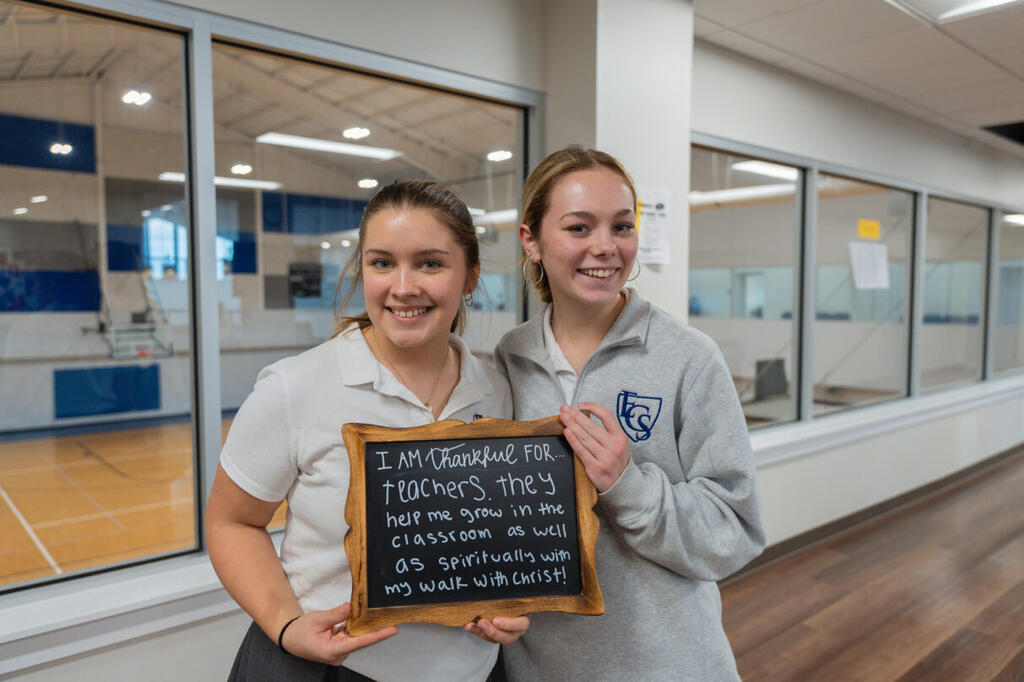 I AM thankful FOR...
teachers. they
help me grow in the
classroom as well
as spiritually with
my walk with Christ!
ECS